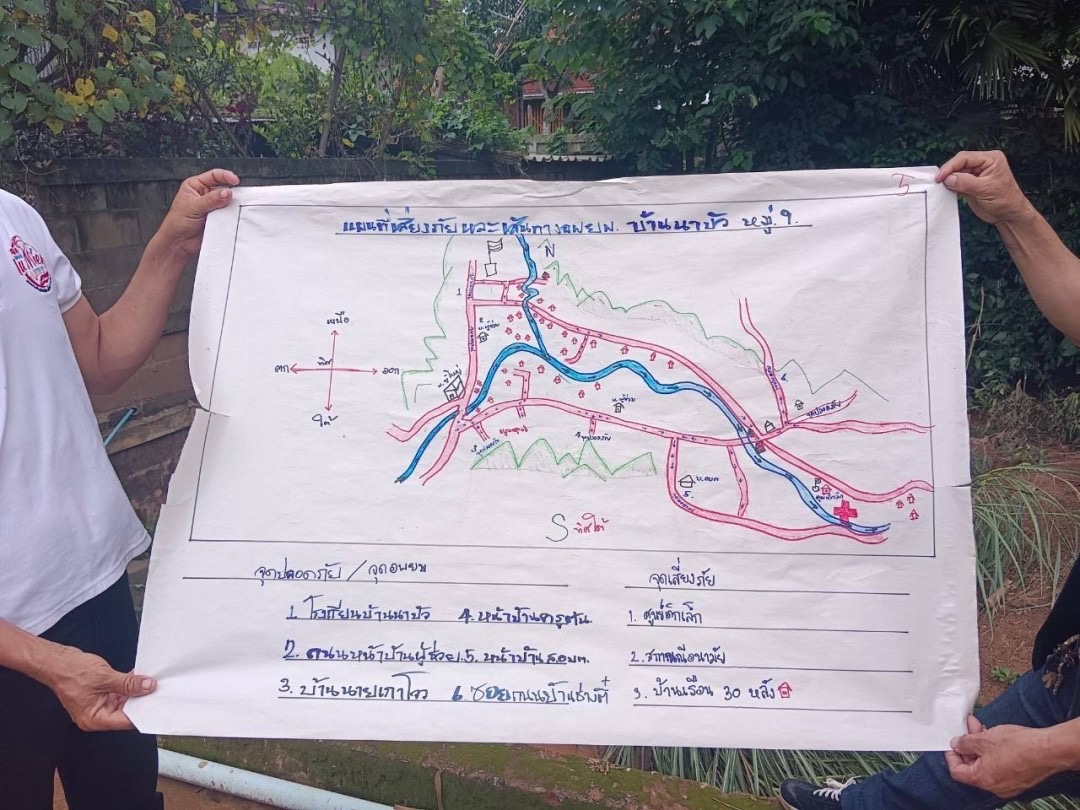 5
แผนที่เสี่ยงภัยและเส้นทางอพยพ บ้านนาบัว หมู่ 9.
N
1
2
เหนือ
ตก ทิศ ออก
ใต้
4.
3
4
5.
S ทิศใต้
จุดปลอดภัย / จุดอพยพ
จุดเสี่ยงภัย
1. โรงเรียนบ้านนาบัว 4. หน้าบ้านครูตัน
1. ศูนย์เด็กเล็ก
2. ถนนหน้าบ้านผู้ช่วย. 5. หน้าบ้าน ส.อบต.
2. สถานีอนามัย
3. บ้านนายเกาโจว 6 ซอยถนนบ้านช่างตี๋
3. บ้านเรือน 30 หลัง